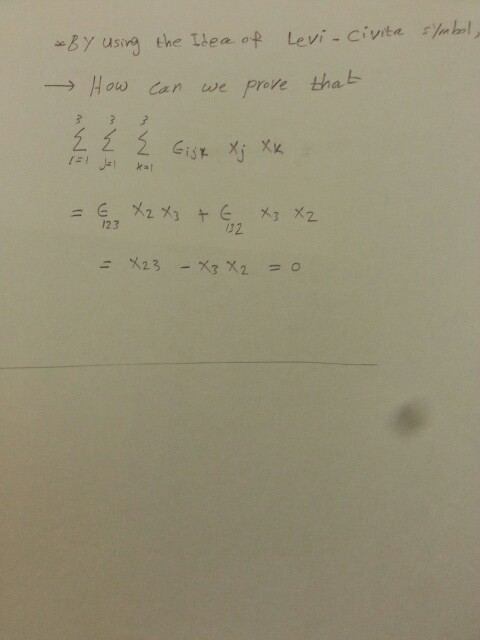 *By using the Idea of Levi-Civita symbol,
→ How can we prove that
3 3 3
Σ Σ Σ ϵijk xj xk
i=1 j=1 k=1
= ϵ123 x2 x3 + ϵ132 x3 x2
= x23 - x3 x2 = 0